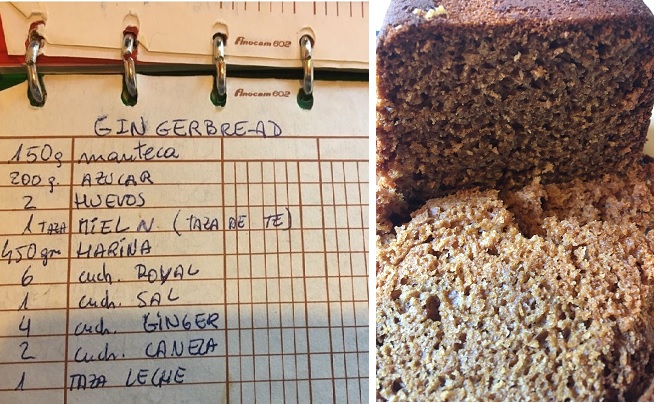 Finocam 602
Finocam 602
GINGERBREAD
150g manteca
200g. AZUCAR
2 HUEVOS
1 TAZA MIEL N. (TAZA DE TE)
450gr HARINA
6 cuch. ROYAL
1 cuch. SAL
4 cuch. GINGER
2 cuch. CANELA
1 TAZA LECHE